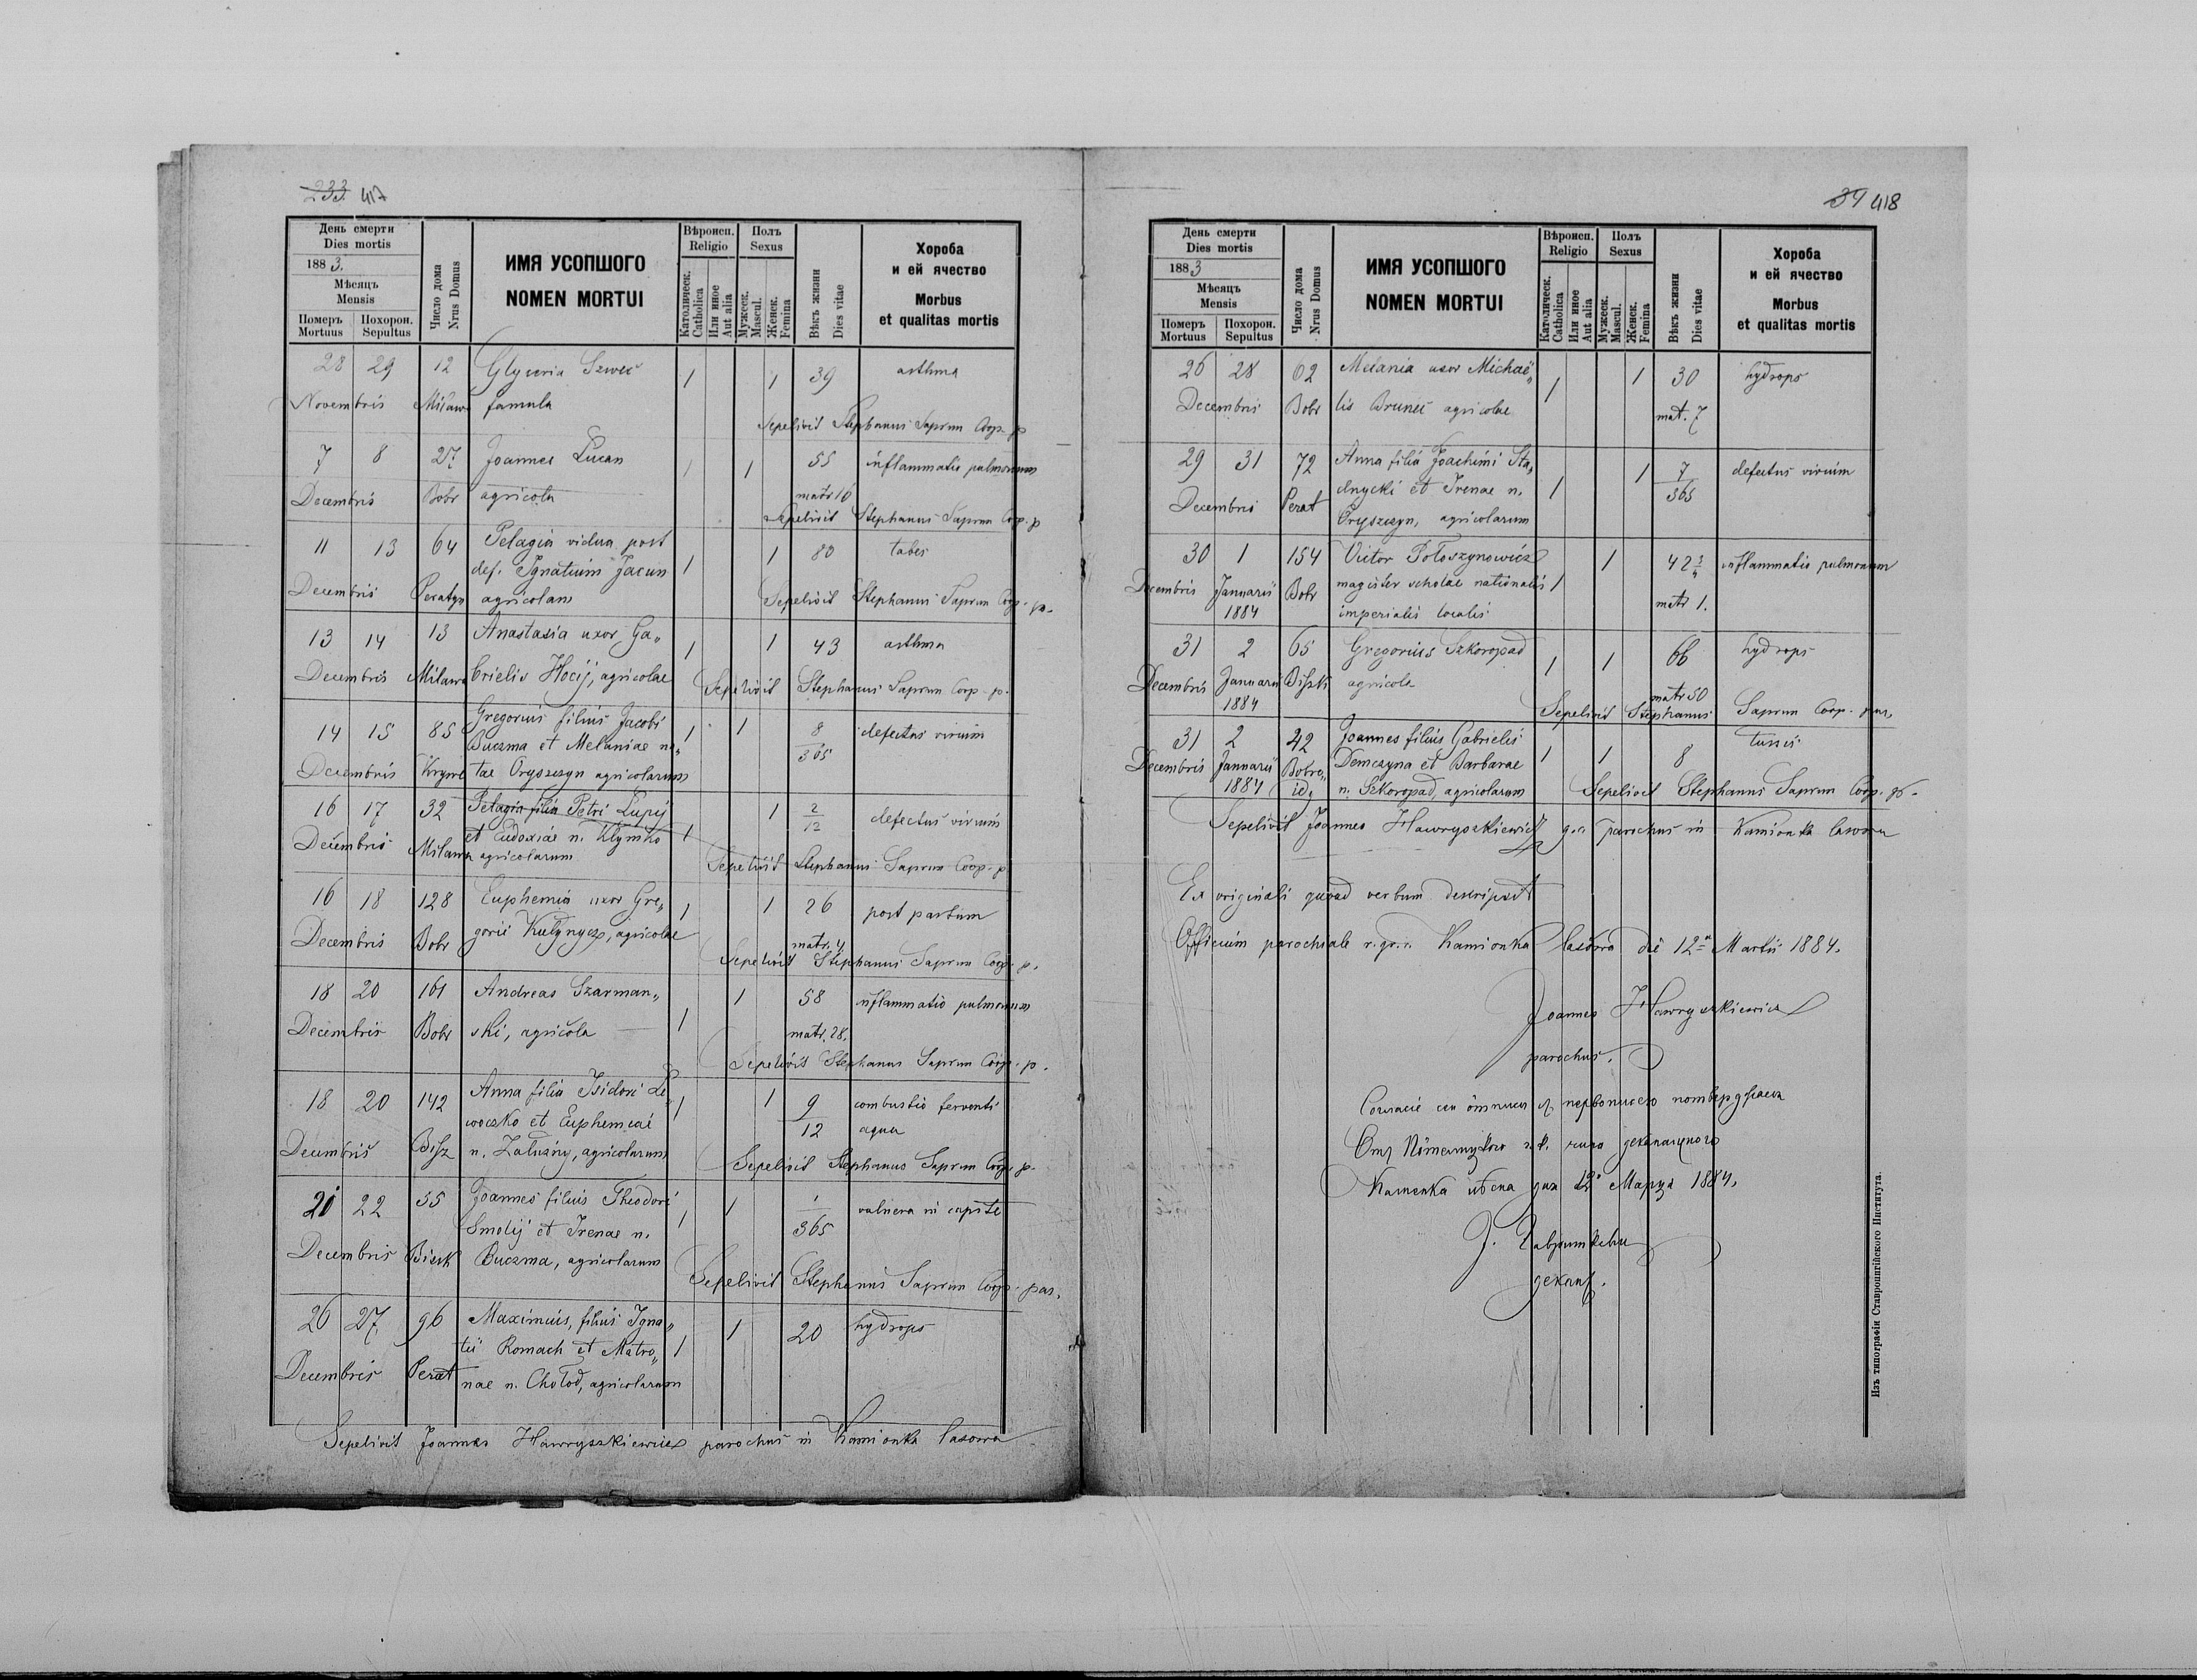 233. 417
День смерти
Dies mortis
1883.
Мѣсяцъ
Mensis
Померъ Похорон.
Mortuus Sepultus
Число дома
Nrus Domus
ИМЯ УСОПШОГО
NOMEN MORTUI
Вѣроисп.
Religio
Католическ.
Catholica
Или иное
Aut alia
Полъ
Sexus
Мужеск.
Mascul.
Женск.
Femina
Вѣкъ жизни
Dies vitae
Хороба
и ей ячество
Morbus
et qualitas mortis
28 29 12 Glyceria Szwec 1 1 39 asthma
Novembris Milaw famula
Sepelivit Stephanus Saprun Coop. p
7 8 27 Joannes Lucan 1 1 55 inflammatio pulmonum
Decembris Bobr agricola matr 16
Sepelivit Stephanus Saprun Coop. p
11 13 64 Pelagia vidua post 1 80 tabes
def. Ignatium Jacun 1
Decembris Peratyn agricolam
Sepelivit Stephanus Saprun Coop. pa.
13 14 13 Anastasia uxor Ga„ 1 1 43 asthma
Decembris Milawa brielis Hocij, agricolae
Sepelivit Stephanus Saprun Coop. p.
14 15 85 Gregorius filius Jacobi 1 1 8 defectus virium
Buczma et Melaniae na„ 365
Decembris tae Oryszczyn agricolarum
16 17 32 Pelagia filia Petri Lupij 1 2 defectus virium
et Eudoxiae n. Klymko 1 12
Decembris Milawa agricolarum
Sepelivit Stephanus Saprun Coop. p
16 18 128 Euphemia uxor Gre„ 1 1 26 post partum
Decembris Bobr gorii Kulynycz, agricolae matr. 4
Sepelivit Stephanus Saprun Coop. p.
18 20 161 Andreas Szarman„ 1 58 inflammatio pulmonum
Decembris Bobr ski, agricola 1 matr. 28.
Sepelivit Stephanus Saprun Coop. p.
18 20 142 Anna filia Isidori Le„ 1 1 9 combustio ferventi
woczko et Euphemiae 12 aqua
Decembris Bisz n. Zalużny, agricolarum
Sepelivit Stephanus Saprun Coop. p.
20 22 55 Joannes filius Theodori 1 1 vulnera in capite
Smolij et Irenae n. 1 365
Decembris Bisck Buczma, agricolarum
Sepelivit Stephanus Saprun Coop. par.
26 27 96 Maximus, filius Igna„ 1 20 hydrops
tii Romach et Matro„ 1
Decembris Perat nae n. Chołod, agricolarum
Sepelivit Joannes Hawryszkiewicz parochus in Kamionka lasowa
418
День смерти
Dies mortis
1883
Мѣсяцъ
Mensis
Померъ Похорон.
Mortuus Sepultus
Число дома
Nrus Domus
ИМЯ УСОПШОГО
NOMEN MORTUI
Вѣроисп.
Religio
Католическ.
Catholica
Или иное
Aut alia
Полъ
Sexus
Мужеск.
Mascul.
Женск.
Femina
Вѣкъ жизни
Dies vitae
Хороба
и ей ячество
Morbus
et qualitas mortis
26 28 62 Melania uxor Michaë„ 1 30 hydrops
Decembris Bobr lis Brunec agricolae 1 mat. 7
29 31 72 Anna filia Joachimi Sta„ 1 7 defectus virium
dnycki et Irenae n. 1 365
Decembris Perat Oryszczyn, agricolarum
30 1 154 Victor Połoszynowicz 1 42 3/4 inflammatio pulmonum
Decembris Januarii Bobr magister scholae nationalis 1 matr 1.
1884 imperialis localis
31 2 65 Gregorius Szkoropad 1 1 66 hydrops
Decembris Januarii Biszk agricola matr 50
1884 Sepelivit Stephanus Saprun Coop. par.
31 2 42 Joannes filius Gabrielis 1 1 8 tussis
Decembris Januarii Bobro„ Demczyna et Barbarae
1884 id. n. Szkoropad, agricolarum Sepelivit Stephanus Saprun Coop. p.
Sepelivit Joannes Hawryszkiewicz parochus in Kamionka lasowa
Ex originali quoad verbum descripsit
Officium parochiale r. gr. c. Kamionka lasowa die 12a Martii 1884.
Joannes Hawryszkiewicz
parochus.
Каменка дня 12 Марца 1884.
деканъ.
Изъ типографіи Ставропигійского Института.